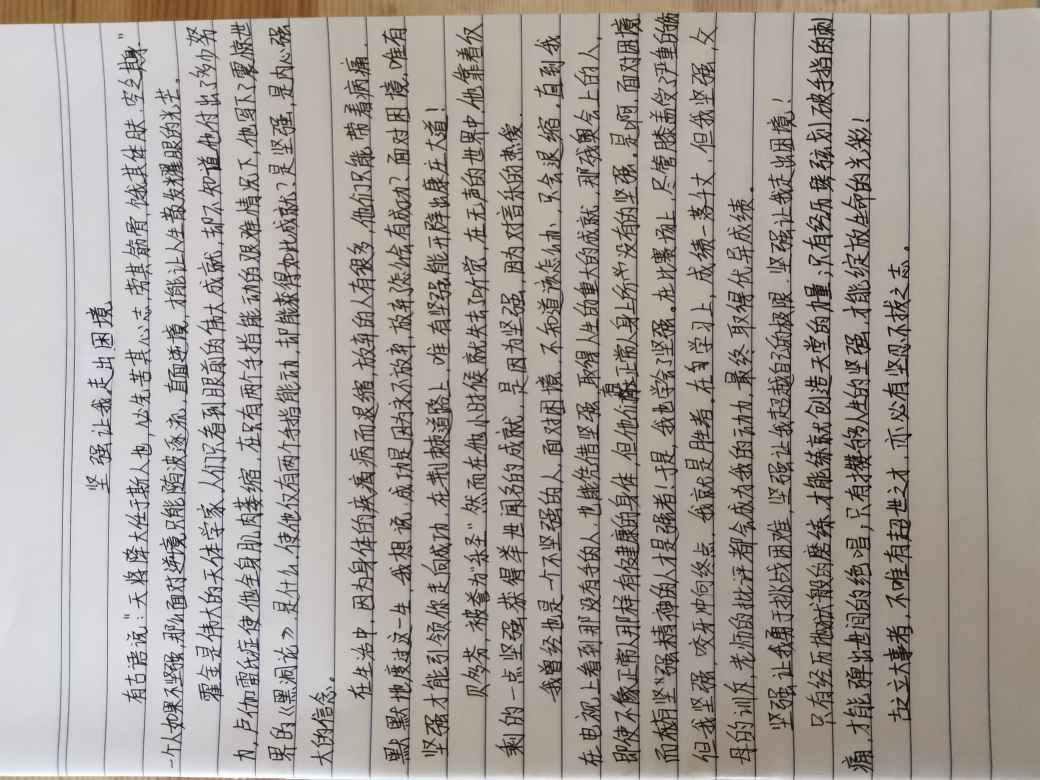 坚强让我走出困境
有古语说:"天将降大任于斯人也,必先苦其心志,劳其筋骨,饿其体肤,空乏其身"
一个人如果不坚强,那么面对逆境只能随波逐流,直面逆境,才能让人生散发耀眼的光芒。
霍金是伟大的天体学家,人们只看到眼前的伟大成就,却不知道他付出了多少努
力,卢伽雷氏症使他全身肌肉萎缩,在只有两个手指能动的艰难情况下,他写下了震惊世
界的《黑洞论》,是什么使他仅有两个手指能动,却能获得如此成就?是坚强,是内心强
大的信念。
在生活中,因为身体的疾病而退缩,放弃的人有很多,他们只能带着病痛
默默地度过这一生,我想说,成功是因为永不放弃,放弃了你怎会有成功?面对困境,唯有
坚强才能引领你走向成功,在荆棘道路上,唯有坚强能开辟出康庄大道!
贝多芬,被誉为"乐圣"然而在他小时候就失去听觉,在无声的世界中,他靠着仅
剩的一点坚强获得举世闻名的成就,是因为坚强,因为对音乐的热爱。
我曾经也是一个不坚强的人,面对困境,不知道该怎么办,只会退缩,直到我
在电视上看到那没有手的人,也能凭借坚强,取得人生的重大的成就,那残奥会上的人,
即使不像正常人那样有健康的身体,但他们有正常人身上所没有的坚强,是啊,面对困境
而拥有坚强精神的人才是强者!于是,我也学会了坚强。在比赛场上,尽管膝盖受了严重的伤
但我坚强,咬牙冲向终点,我就是胜者,在自学习上,成绩一落千丈,但我坚强,父
母的训斥,老师的批评都会成为我的动力,最终取得优异成绩。
坚强让我勇于挑战困难,坚强让我超越自己的极限,坚强让我走出困境!
只有经历地狱般的磨练,才能练就创造天堂的力量;只有经历琴弦划破手指的刺
痛,才能弹出世间的绝唱;只有拥有人生的坚强,才能绽放生命的光彩!
古之立事者,不唯有超世之才,亦必有坚忍不拔之志。